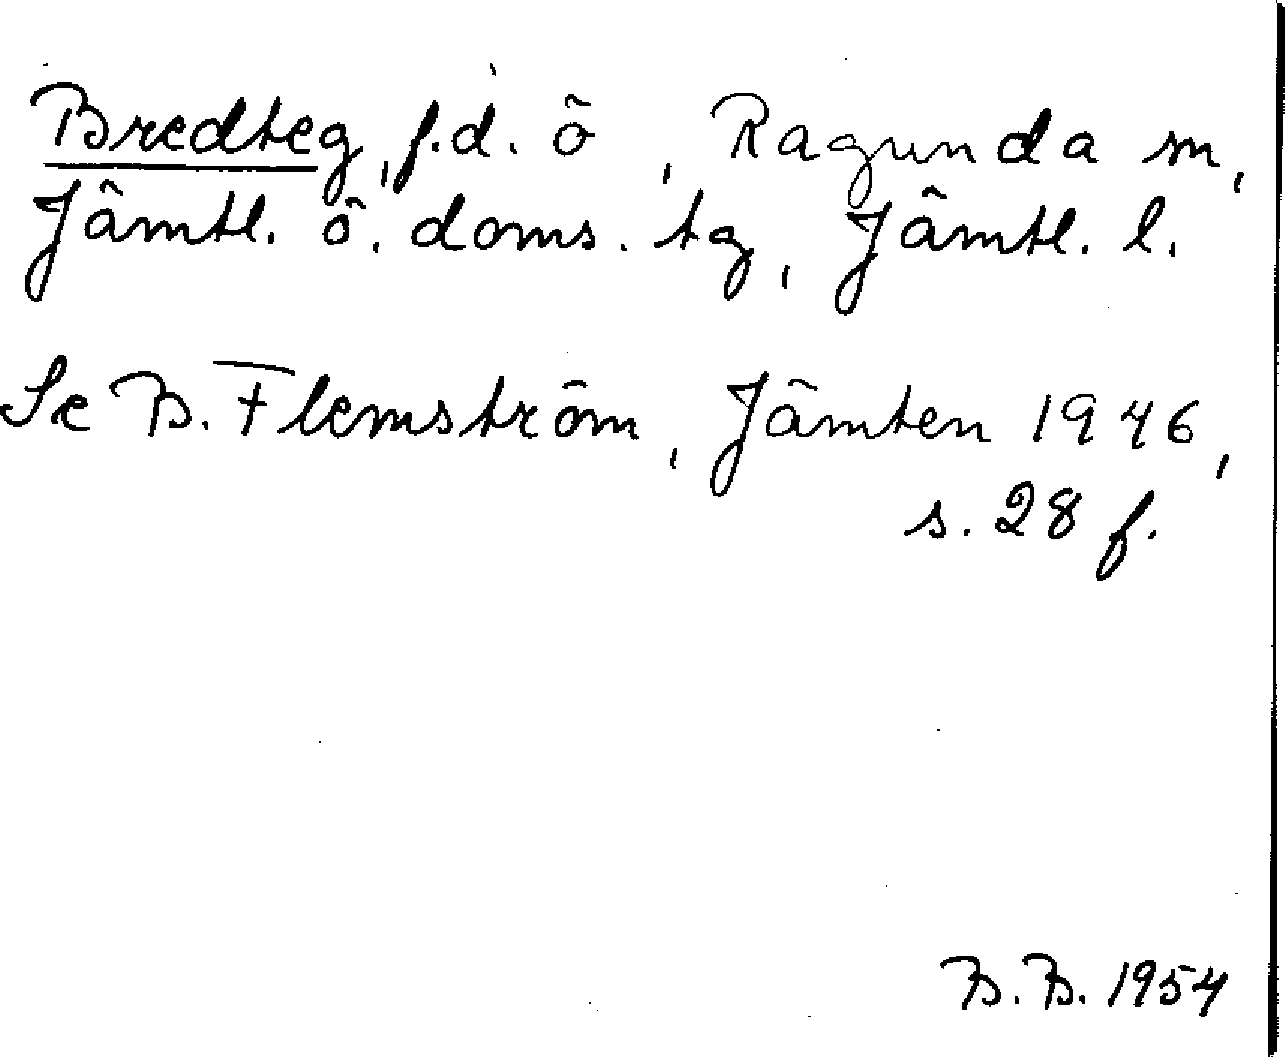 Bredteg, f.d. ö, Ragunda sn,
Jämtl. ö. doms. tg, Jämtl. l.
Se B. Flemström, Jämten 1946,
s. 28 f.
B. B. 1954